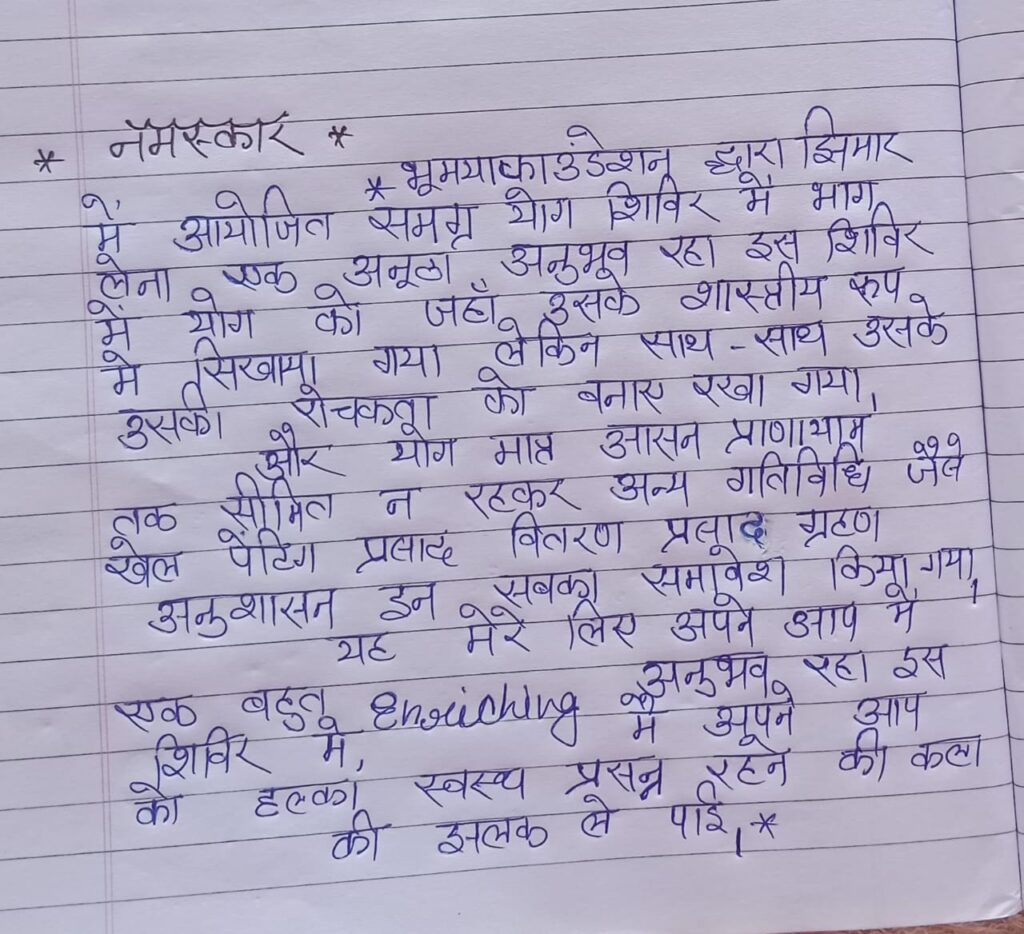 * नमस्कार *
* भूमयाफाउंडेशन द्वारा झिमार
में आयोजित समग्र योग शिविर में भाग
लेना एक अनूठा अनुभव रहा इस शिविर
में योग को जहाँ उसके शास्त्रीय रूप
में सिखाया गया लेकिन साथ - साथ उसके
उसकी रोचकता को बनाए रखा गया,
और योग मात्र आसन प्राणायाम
तक सीमित न रहकर अन्य गतिविधि जैसे
खेल पेंटिंग प्रसाद वितरण प्रसाद ग्रहण
अनुशासन इन सबका समावेश किया गया,
यह मेरे लिए अपने आप में
एक बहुत Enriching अनुभव रहा इस
शिविर में, मैं अपने आप
को हल्का स्वस्थ प्रसन्न रहने की कला
की झलक ले पाई।*